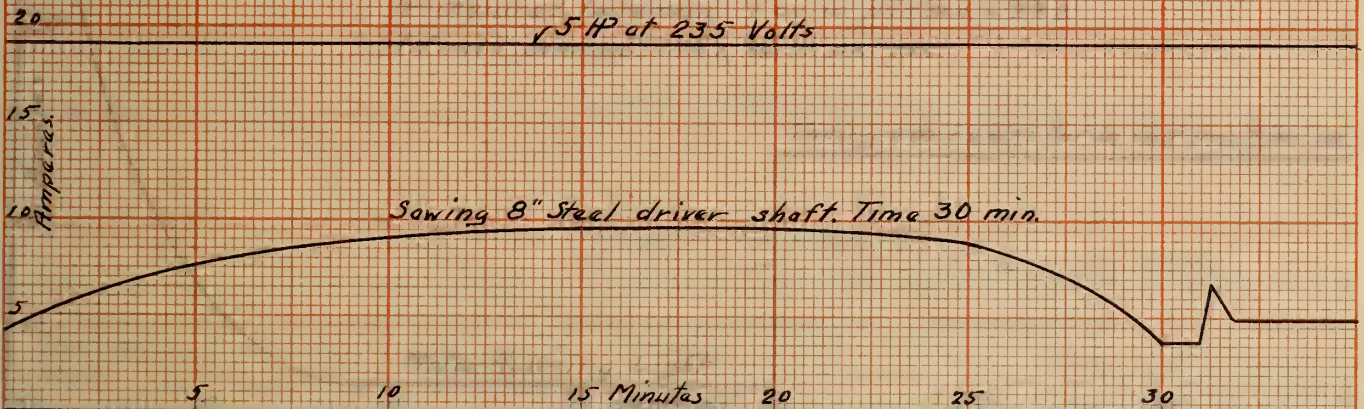 20
5 HP at 235 Volts
15
Amperes.
10
Sawing 8" Steel driver shaft. Time 30 min.
5
5 10 15 Minutes 20 25 30